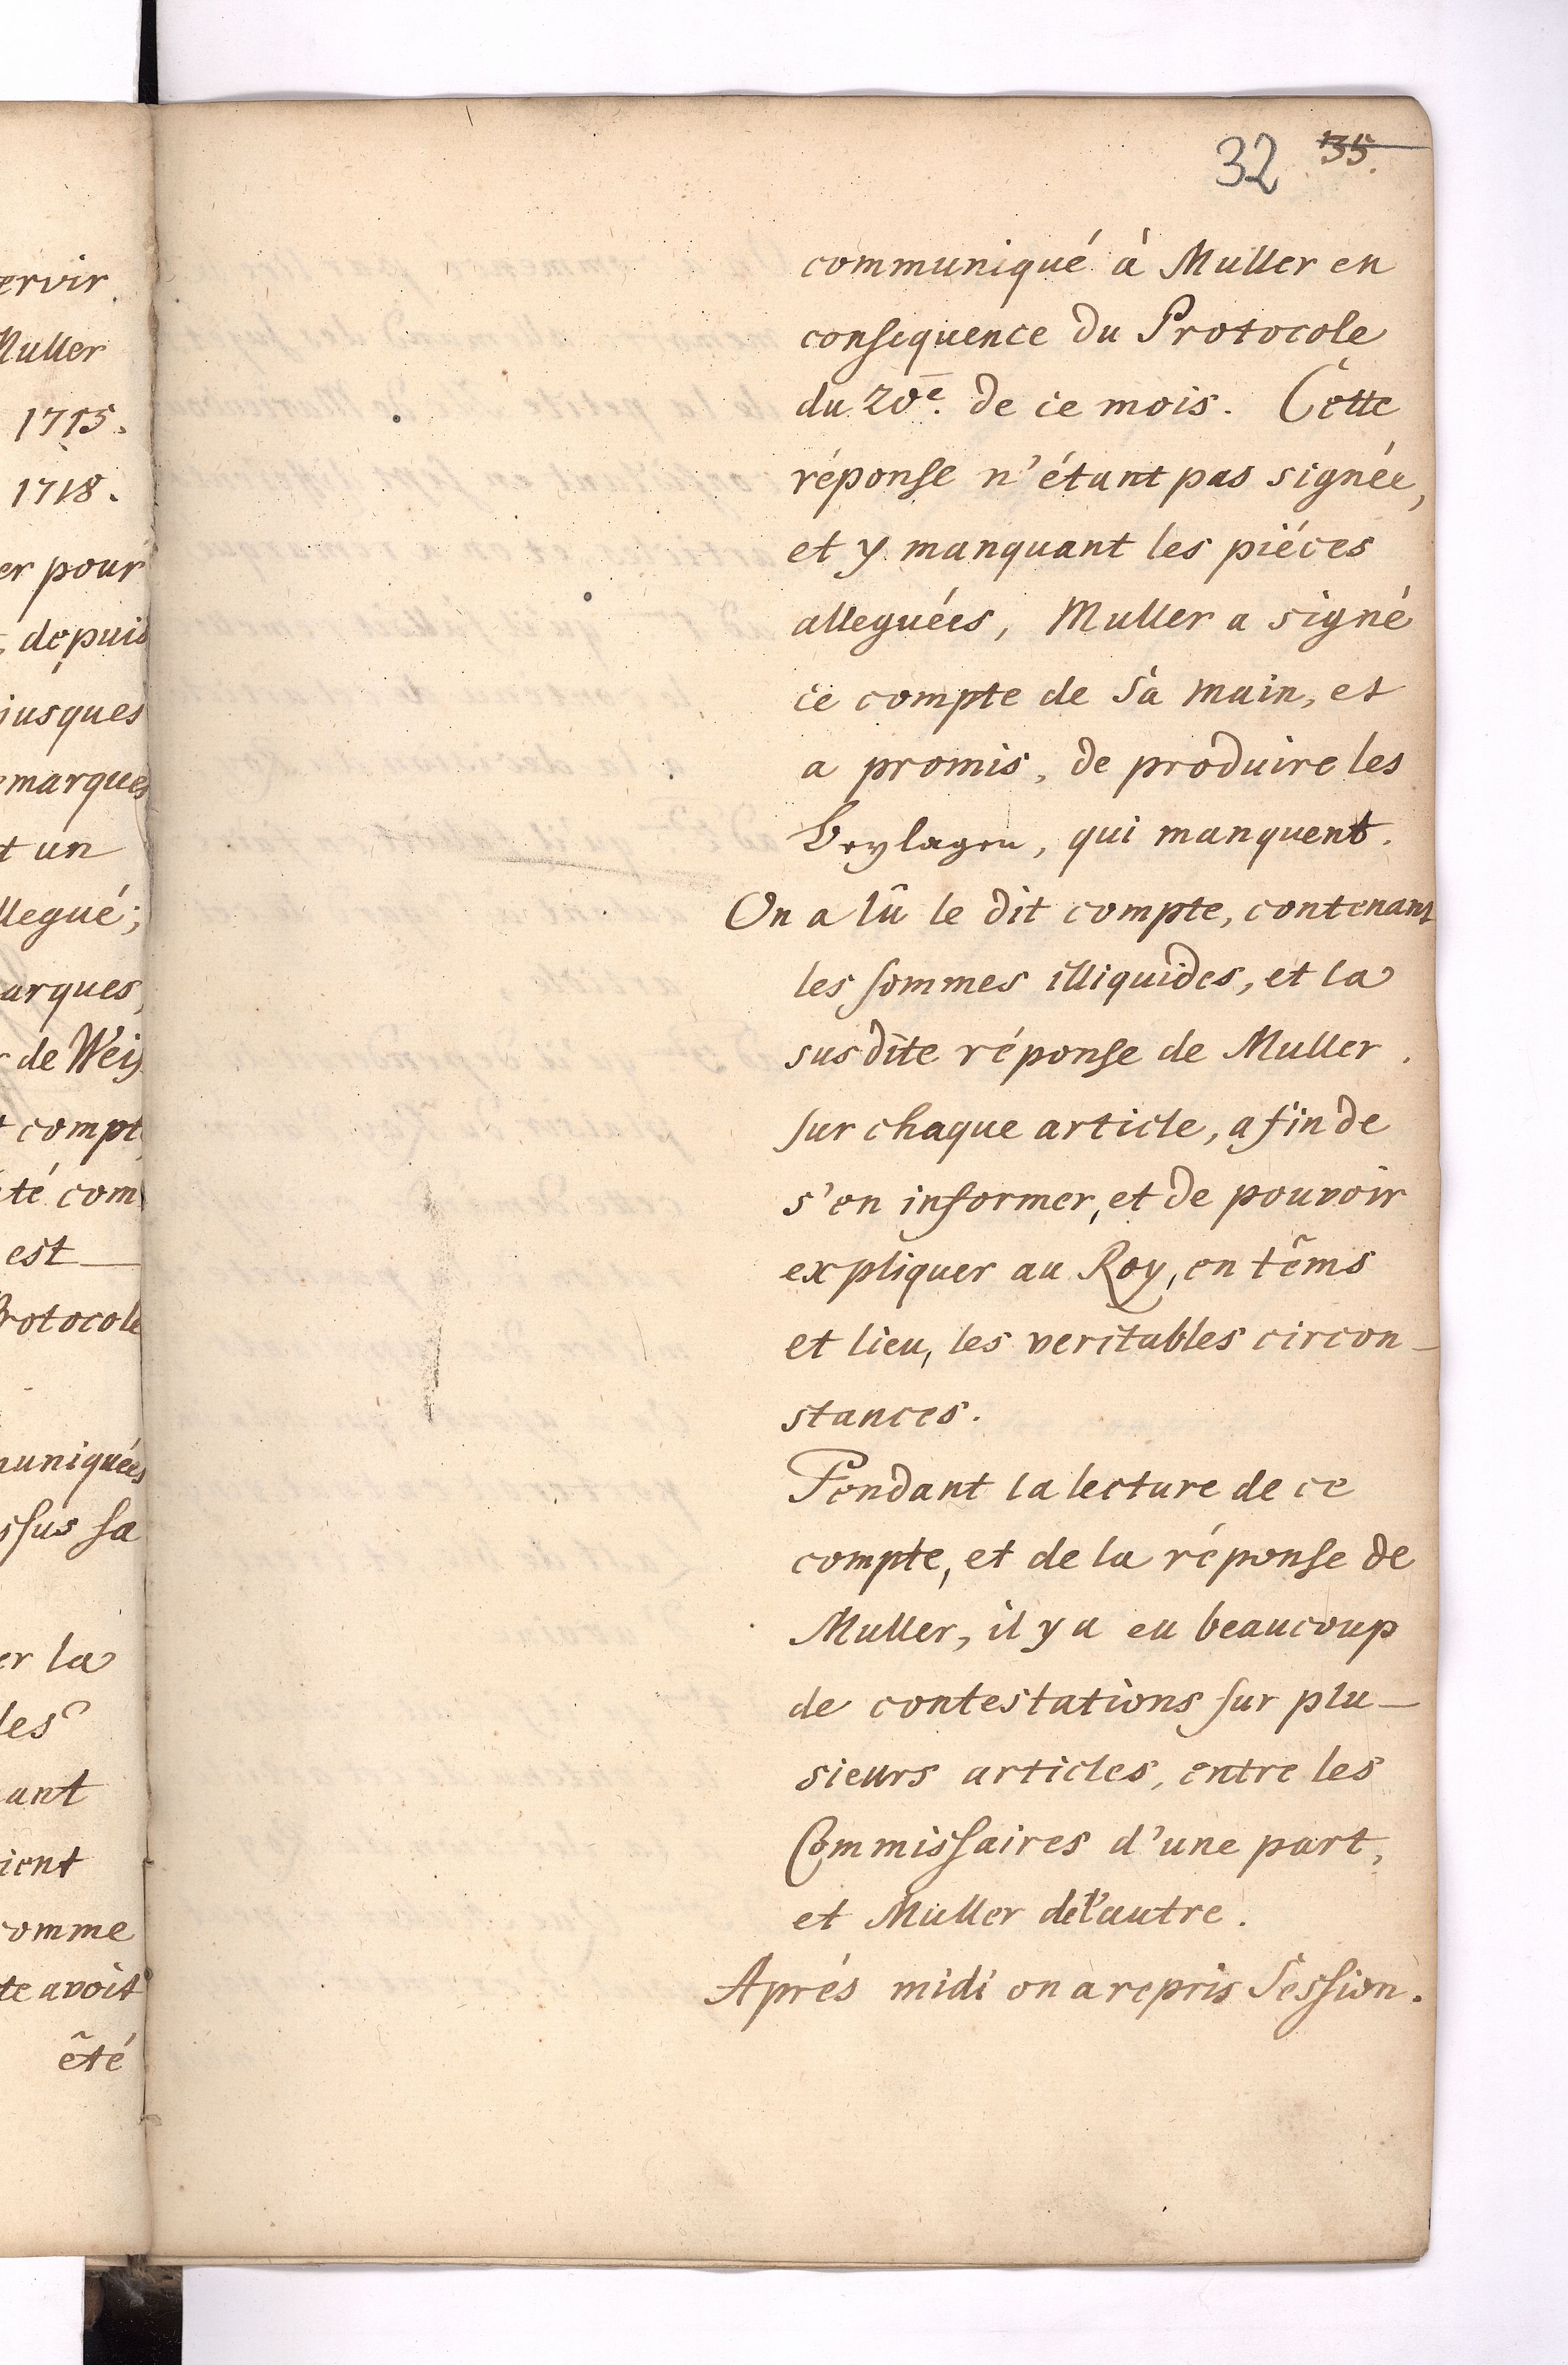 ervir
Muller
1715.
1718.
er pour
, depuis
jusques
emarques
t un
llegué;
arques,
r de Weis
t compt
té com
est
Protocole
muniquées
ssus sa
er la
les
ant
ient
comme
te avoit
êté
32 35.
communiqué à Muller en
consequence du Protocole
du 20e. de ce mois. Cette
réponse n'étant pas signée,
et y manquant les piéces
alleguées, Muller a signé
ce compte de sa main, et
a promis, de produire les
Beylagen, qui manquent.
On a lû le dit compte, contenant
les sommes illiquides, et la
susdite réponse de Muller
sur chaque article, afin de
s'en informer, et de pouvoir
expliquer au Roy, en têms
et lieu, les veritables circon-
stances.
Pendant la lecture de ce
compte, et de la réponse de
Muller, il y a eu beaucoup
de contestations sur plu-
sieurs articles, entre les
Commissaires d'une part,
et Muller de l'autre.
Aprés midi on a repris Session.